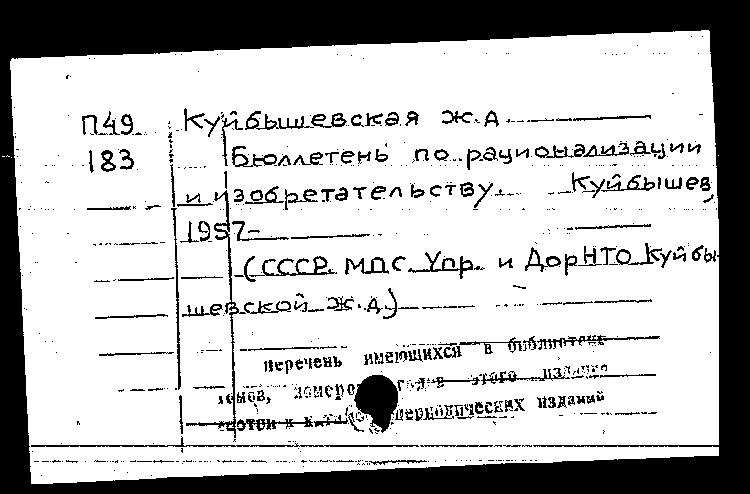 П49 Куйбышевская ж.д.
183 Бюллетень по рационализации
и изобретательству. Куйбышев,
1957-
(СССР. МПС. Упр. и ДорНТО Куйбы-
шевской ж.д.)
Перечень имеющихся в библиотеке
томов, номеров годов этого издания
смотри в каталоге периодических изданий